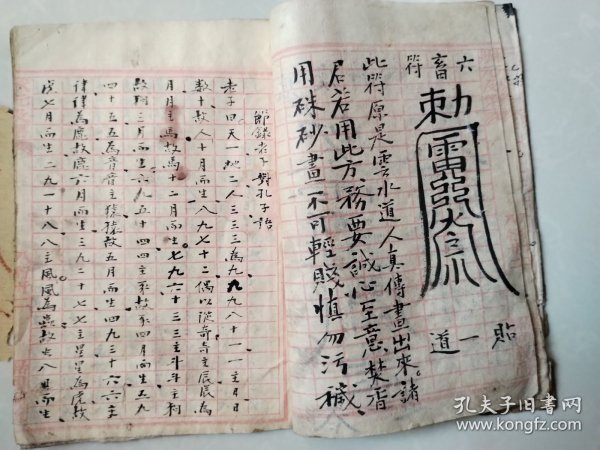 六畜符
勅
貼一道
此符原是雲水道人真傳畫出來。諸
君若用此方務要誠心至意焚香
用硃砂畫不可輕賤慎勿污穢
節錄老子對孔子語
老子曰天一地二人三三三為九九九八十一一主日日
數十故人十月而生八九七十二偶以從奇奇主辰辰為
月月主馬故馬十二月而生七九六十三三主斗斗主狗
故狗三月而生六九五十四四主豕故豕四月而生五九
四十五五為音音主猿猿故五月而生四九三十六六主
律律為鹿故鹿六月而生三九二十七七主星星為虎故
虎七月而生二九一十八八主風風為蟲故虫八月而生
孔夫子旧书网
www.kongfz.com